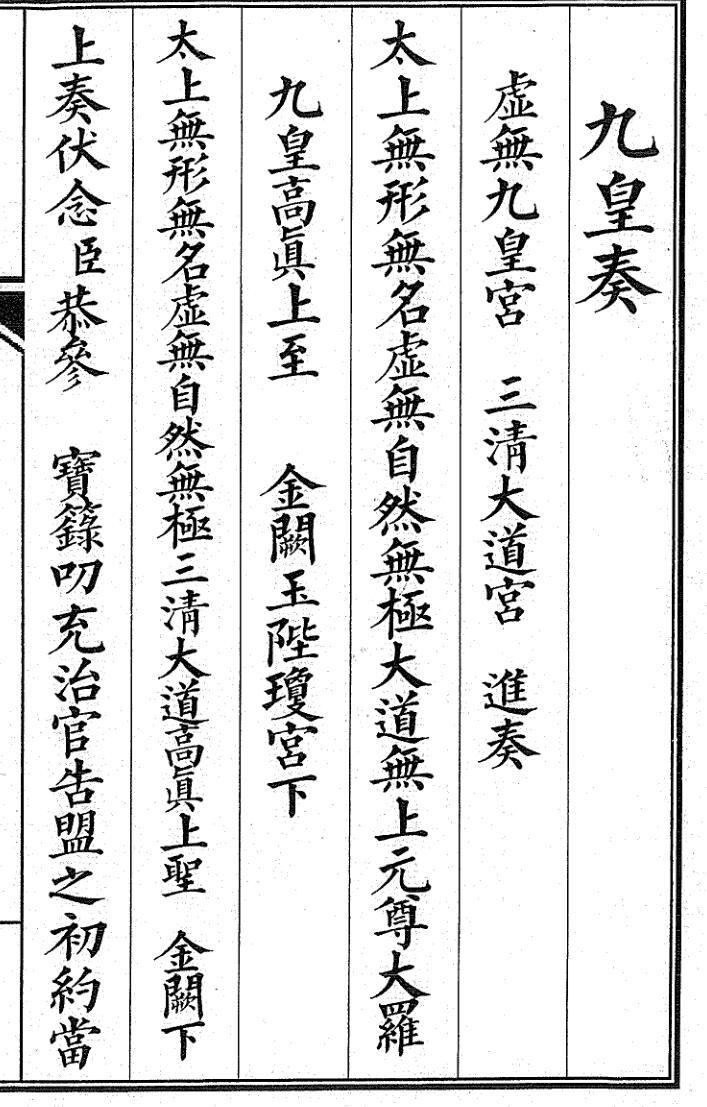 九皇奏
虛無九皇宮　三清大道宮　進奏
太上無形無名虛無自然無極大道無上元尊大羅
九皇高眞上至　金闕玉陛瓊宮下
太上無形無名虛無自然無極三清大道高眞上聖　金闕下
上奏伏念臣恭參　寶籙叨充治官告盟之初約當